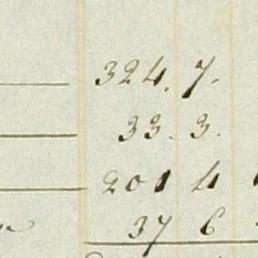 324. 7.
33. 3.
201 4
37 6